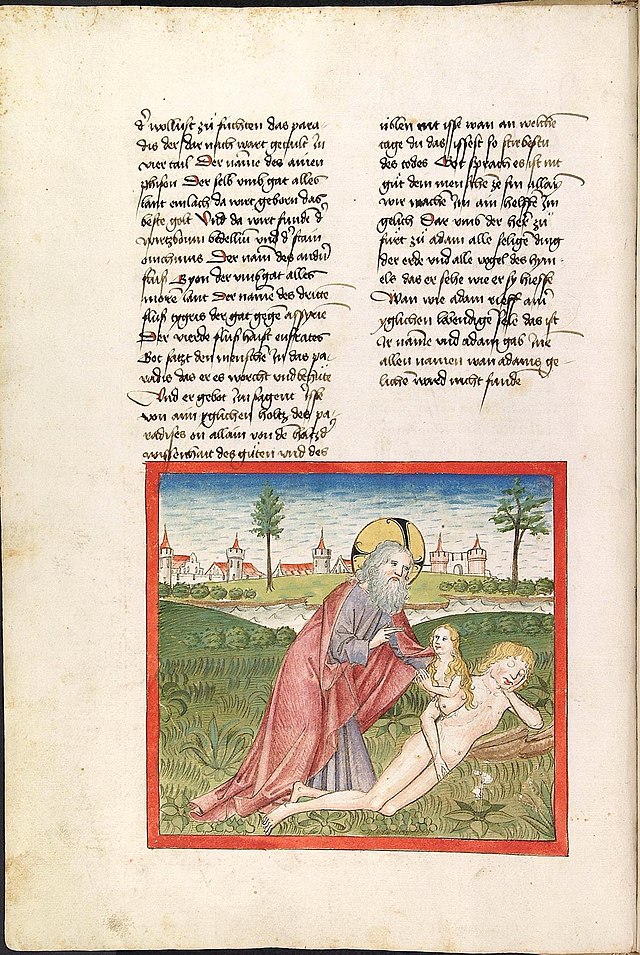 d' wollust zů füchten das para-
dis der dar nach wart getailt in
vier tail Der name des ainen
phison Der selb vmb gat alles
lant da wirt geborn das
beste golt Vnd da wirt funde d'
bdellin vnd d' stain
onichinus Der nam des andn
fluß Gyon der vmb gat alles
moren lant Der name des dritte
fluß tygris der gat gegē assyrie
Der vierde fluß haist eufrates
Got satzt den mensche In das pa-
radis das er es worcht vnd behüte
Vnd er gebot Im sagent Isse
von aim yglichen holtz des pa-
radises on allain von de holtz d'
wissenhait des gůten vnd des
úblen nit isse wan an welche
tage du das issest so stirbestu
des todes Got sprach es ist nit
gůt dem mensche ze sin allain
wir mache Im ain helffe Im
gelich Dar vmb der her zů
fürt zů adam alle selige ding
der erde vnd alle vogel des hym-
els das er sehe wie er sy hiesse
Wan wie adam rieff aim
yglichen lebendige sele das ist
Ir name vnd adam gab Ine
allen namen wan adams ge-
lichen ward nicht funde